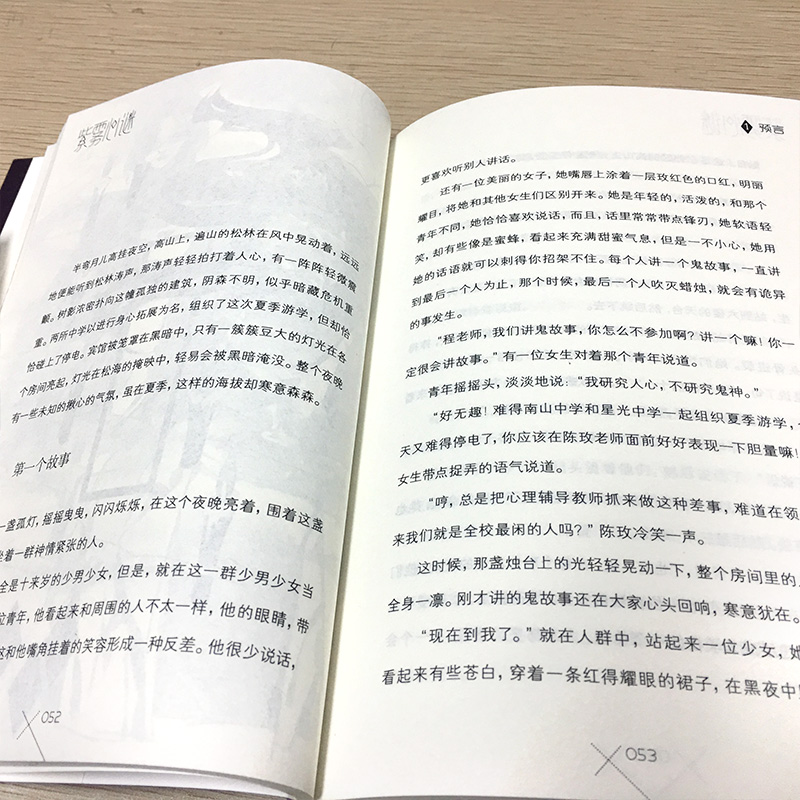 紫雾心谜
半弯月儿高挂夜空，高山上，遍山的松林在风中晃动着，远远
地便能听到松林涛声，那涛声轻轻拍打着人心，有一阵阵轻微震
颤。树影浓密扑向这幢孤独的建筑，阴森不明，似乎暗藏危机重
重。两所中学以进行身心拓展为名，组织了这次夏季游学，但却恰
恰碰上了停电。宾馆被笼罩在黑暗中，只有一簇簇豆大的灯光在各
个房间亮起，灯光在松海的掩映中，轻易会被黑暗淹没。整个夜晚
有一些未知的揪心的气氛，虽在夏季，这样的海拔却寒意森森。
第一个故事
一盏孤灯，摇摇曳曳，闪闪烁烁，在这个夜晚亮着，围着这盏
坐着一群神情紧张的人。
全是十来岁的少男少女，但是，就在这一群少男少女当
位青年，他看起来和周围的人不太一样，他的眼睛，带
这和他嘴角挂着的笑容形成一种反差。他很少说话，
052
1 预言
更喜欢听别人讲话。
还有一位美丽的女子，她嘴唇上涂着一层玫红色的口红，明丽
耀目，将她和其他女生们区别开来。她是年轻的，活泼的，和那个
青年不同，她恰恰喜欢说话，而且，话里常常带点锋刃，她软语轻
笑，却有些像是蜜蜂，看起来充满甜蜜气息，但是一不小心，她用
她的话语就可以刺得你招架不住。每个人讲一个鬼故事，一直讲
到最后一个人为止，那个时候，最后一个人吹灭蜡烛，就会有诡异
的事发生。
“程老师，我们讲鬼故事，你怎么不参加啊？讲一个嘛！你一
定很会讲故事。”有一位女生对着那个青年说道。
青年摇摇头，淡淡地说：“我研究人心，不研究鬼神。”
“好无趣！难得南山中学和星光中学一起组织夏季游学，
天又难得停电了，你应该在陈玫老师面前好好表现一下胆量嘛！
女生带点捉弄的语气说道。
“哼，总是把心理辅导教师抓来做这种差事，难道在领
来我们就是全校最闲的人吗？”陈玫冷笑一声。
这时候，那盏烛台上的光轻轻晃动一下，整个房间里的
全身一凛。刚才讲的鬼故事还在大家心头回响，寒意犹在。
“现在到我了。”就在人群中，站起来一位少女，她
看起来有些苍白，穿着一条红得耀眼的裙子，在黑夜中
053